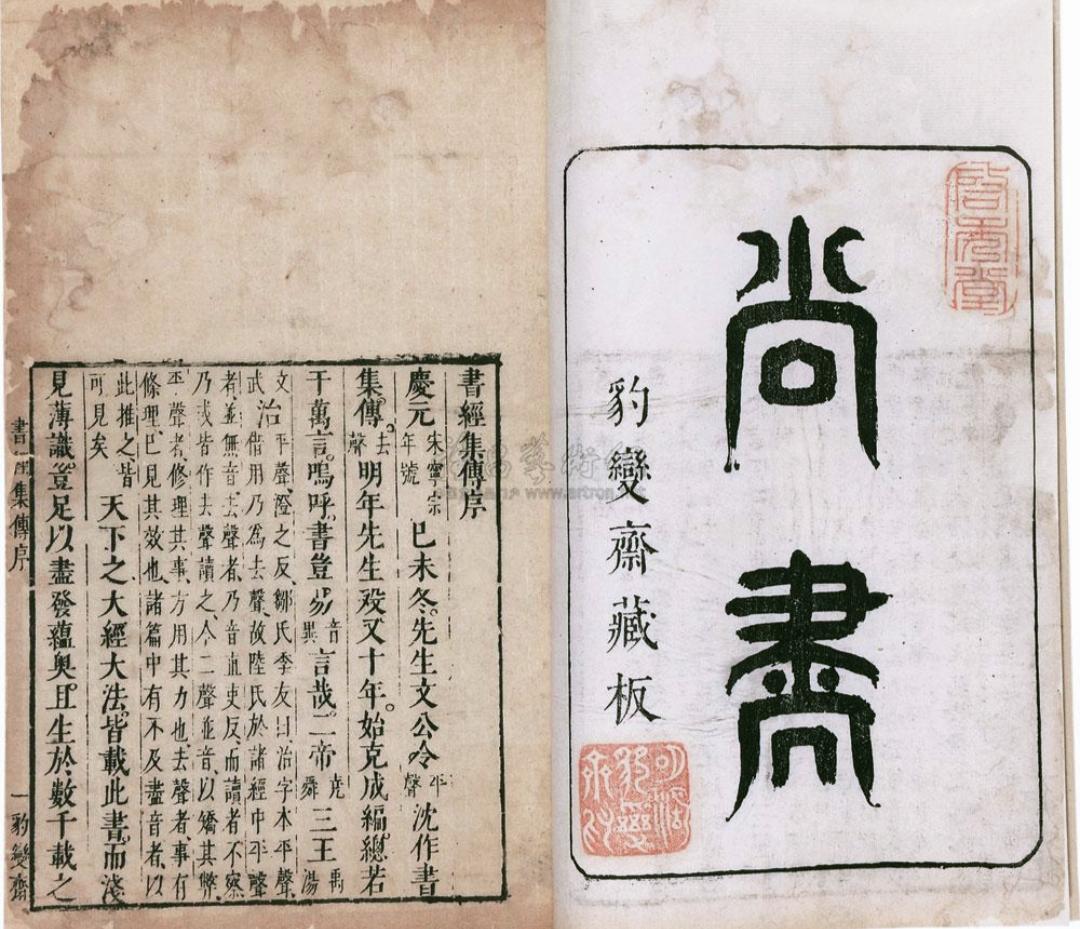 尚書
豹變齋藏板
書經集傳序
慶元宋寧宗年號己未冬。先生文公令平聲沈作書
集傳。去聲明年先生歿又十年。始克成編。總若
干萬言。嗚呼。書豈易音異言哉。二帝堯舜三王禹湯
文武治平聲、澄之反、鄒氏季友曰、治字本平聲、借用乃為去聲、故陸氏於諸經中平聲
者、並無音、去聲者、乃音直吏反、而讀者不察
乃或皆作去聲讀之、今二聲並音、以矯其弊、
平聲者、修理其事、方用其力也、去聲者、事有
條理、已見其效也、諸篇中有不及盡音者、以
此推之、皆可見矣天下之大經大法。皆載此書。而淺
見薄識。豈足以盡發蘊奧。且生於數千載之
集傳序
一
豹變齋